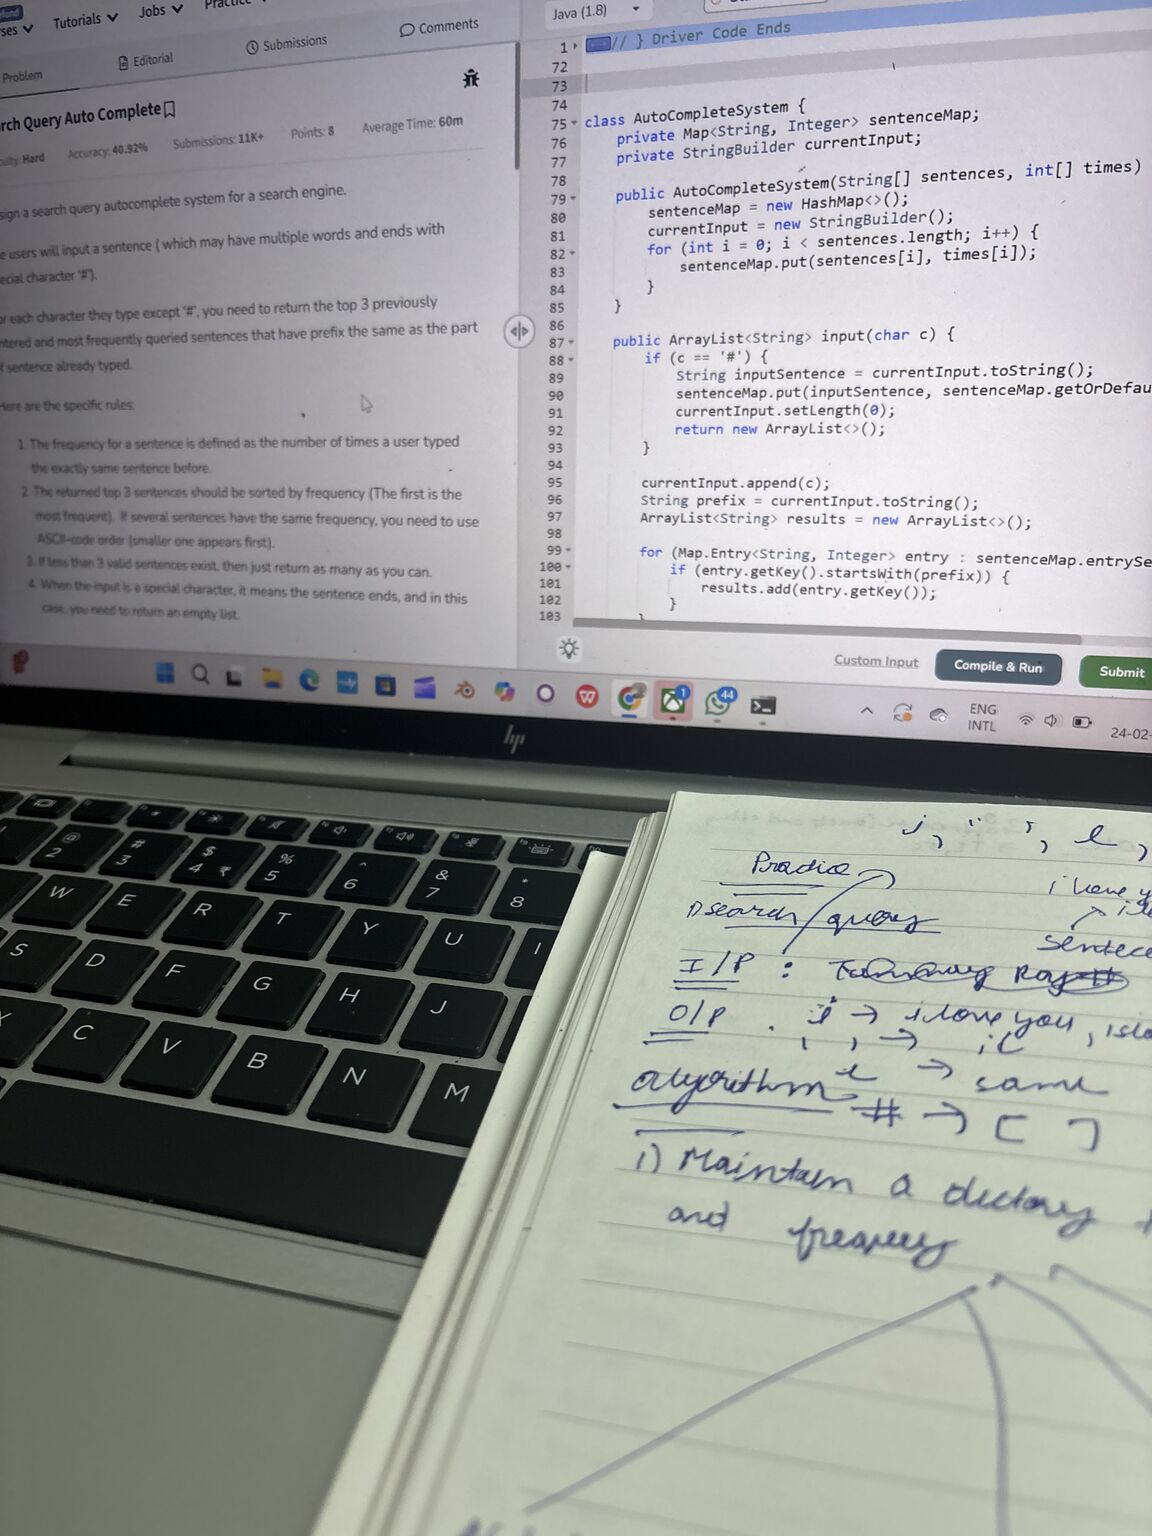 Tutorials
Jobs
Problem
Editorial
Submissions
Comments
rch Query Auto Complete
Hard
Accuracy: 40.92%
Submissions: 11K+
Points: 8
Average Time: 60m
sign a search query autocomplete system for a search engine.
e users will input a sentence ( which may have multiple words and ends with
ecial character '#').
or each character they type except '#', you need to return the top 3 previously
ntered and most frequently queried sentences that have prefix the same as the part
f sentence already typed.
Here are the specific rules:
1. The frequency for a sentence is defined as the number of times a user typed
the exactly same sentence before.
2. The returned top 3 sentences should be sorted by frequency (The first is the
most frequent). If several sentences have the same frequency, you need to use
ASCII-code order (smaller one appears first).
3. If less than 3 valid sentences exist, then just return as many as you can.
4. When the input is a special character, it means the sentence ends, and in this
case, you need to return an empty list.
Java (1.8)
1 // } Driver Code Ends
72
73
74
75 class AutoCompleteSystem {
76 private Map<String, Integer> sentenceMap;
77 private StringBuilder currentInput;
78
79 public AutoCompleteSystem(String[] sentences, int[] times)
80 sentenceMap = new HashMap<>();
81 currentInput = new StringBuilder();
82 for (int i = 0; i < sentences.length; i++) {
83 sentenceMap.put(sentences[i], times[i]);
84 }
85 }
86
87 public ArrayList<String> input(char c) {
88 if (c == '#') {
89 String inputSentence = currentInput.toString();
90 sentenceMap.put(inputSentence, sentenceMap.getOrDefau
91 currentInput.setLength(0);
92 return new ArrayList<>();
93 }
94
95 currentInput.append(c);
96 String prefix = currentInput.toString();
97 ArrayList<String> results = new ArrayList<>();
98
99 for (Map.Entry<String, Integer> entry : sentenceMap.entrySe
100 if (entry.getKey().startsWith(prefix)) {
101 results.add(entry.getKey());
102 }
103 }
Custom Input
Compile & Run
Submit
1
44
ENG
INTL
24-02-
hp
@ 2
# 3
$ 4 ₹
% 5
^ 6
& 7
* 8
W E R T Y U I
S D F G H J
X C V B N M
i, " ", l,
i love y
search/query
I/P :
O/P . i → i love you, isla
algorithm → same
# → [ ]
i) Maintain a
and